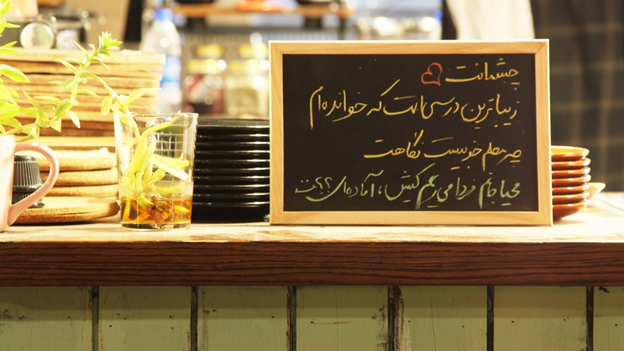 چشمانت
زیباترین درسی است که خوانده‌ام
چه معلم خوبیست نگاهت
محیا جانم فردا می‌ریم کیش، آماده‌ای؟؟